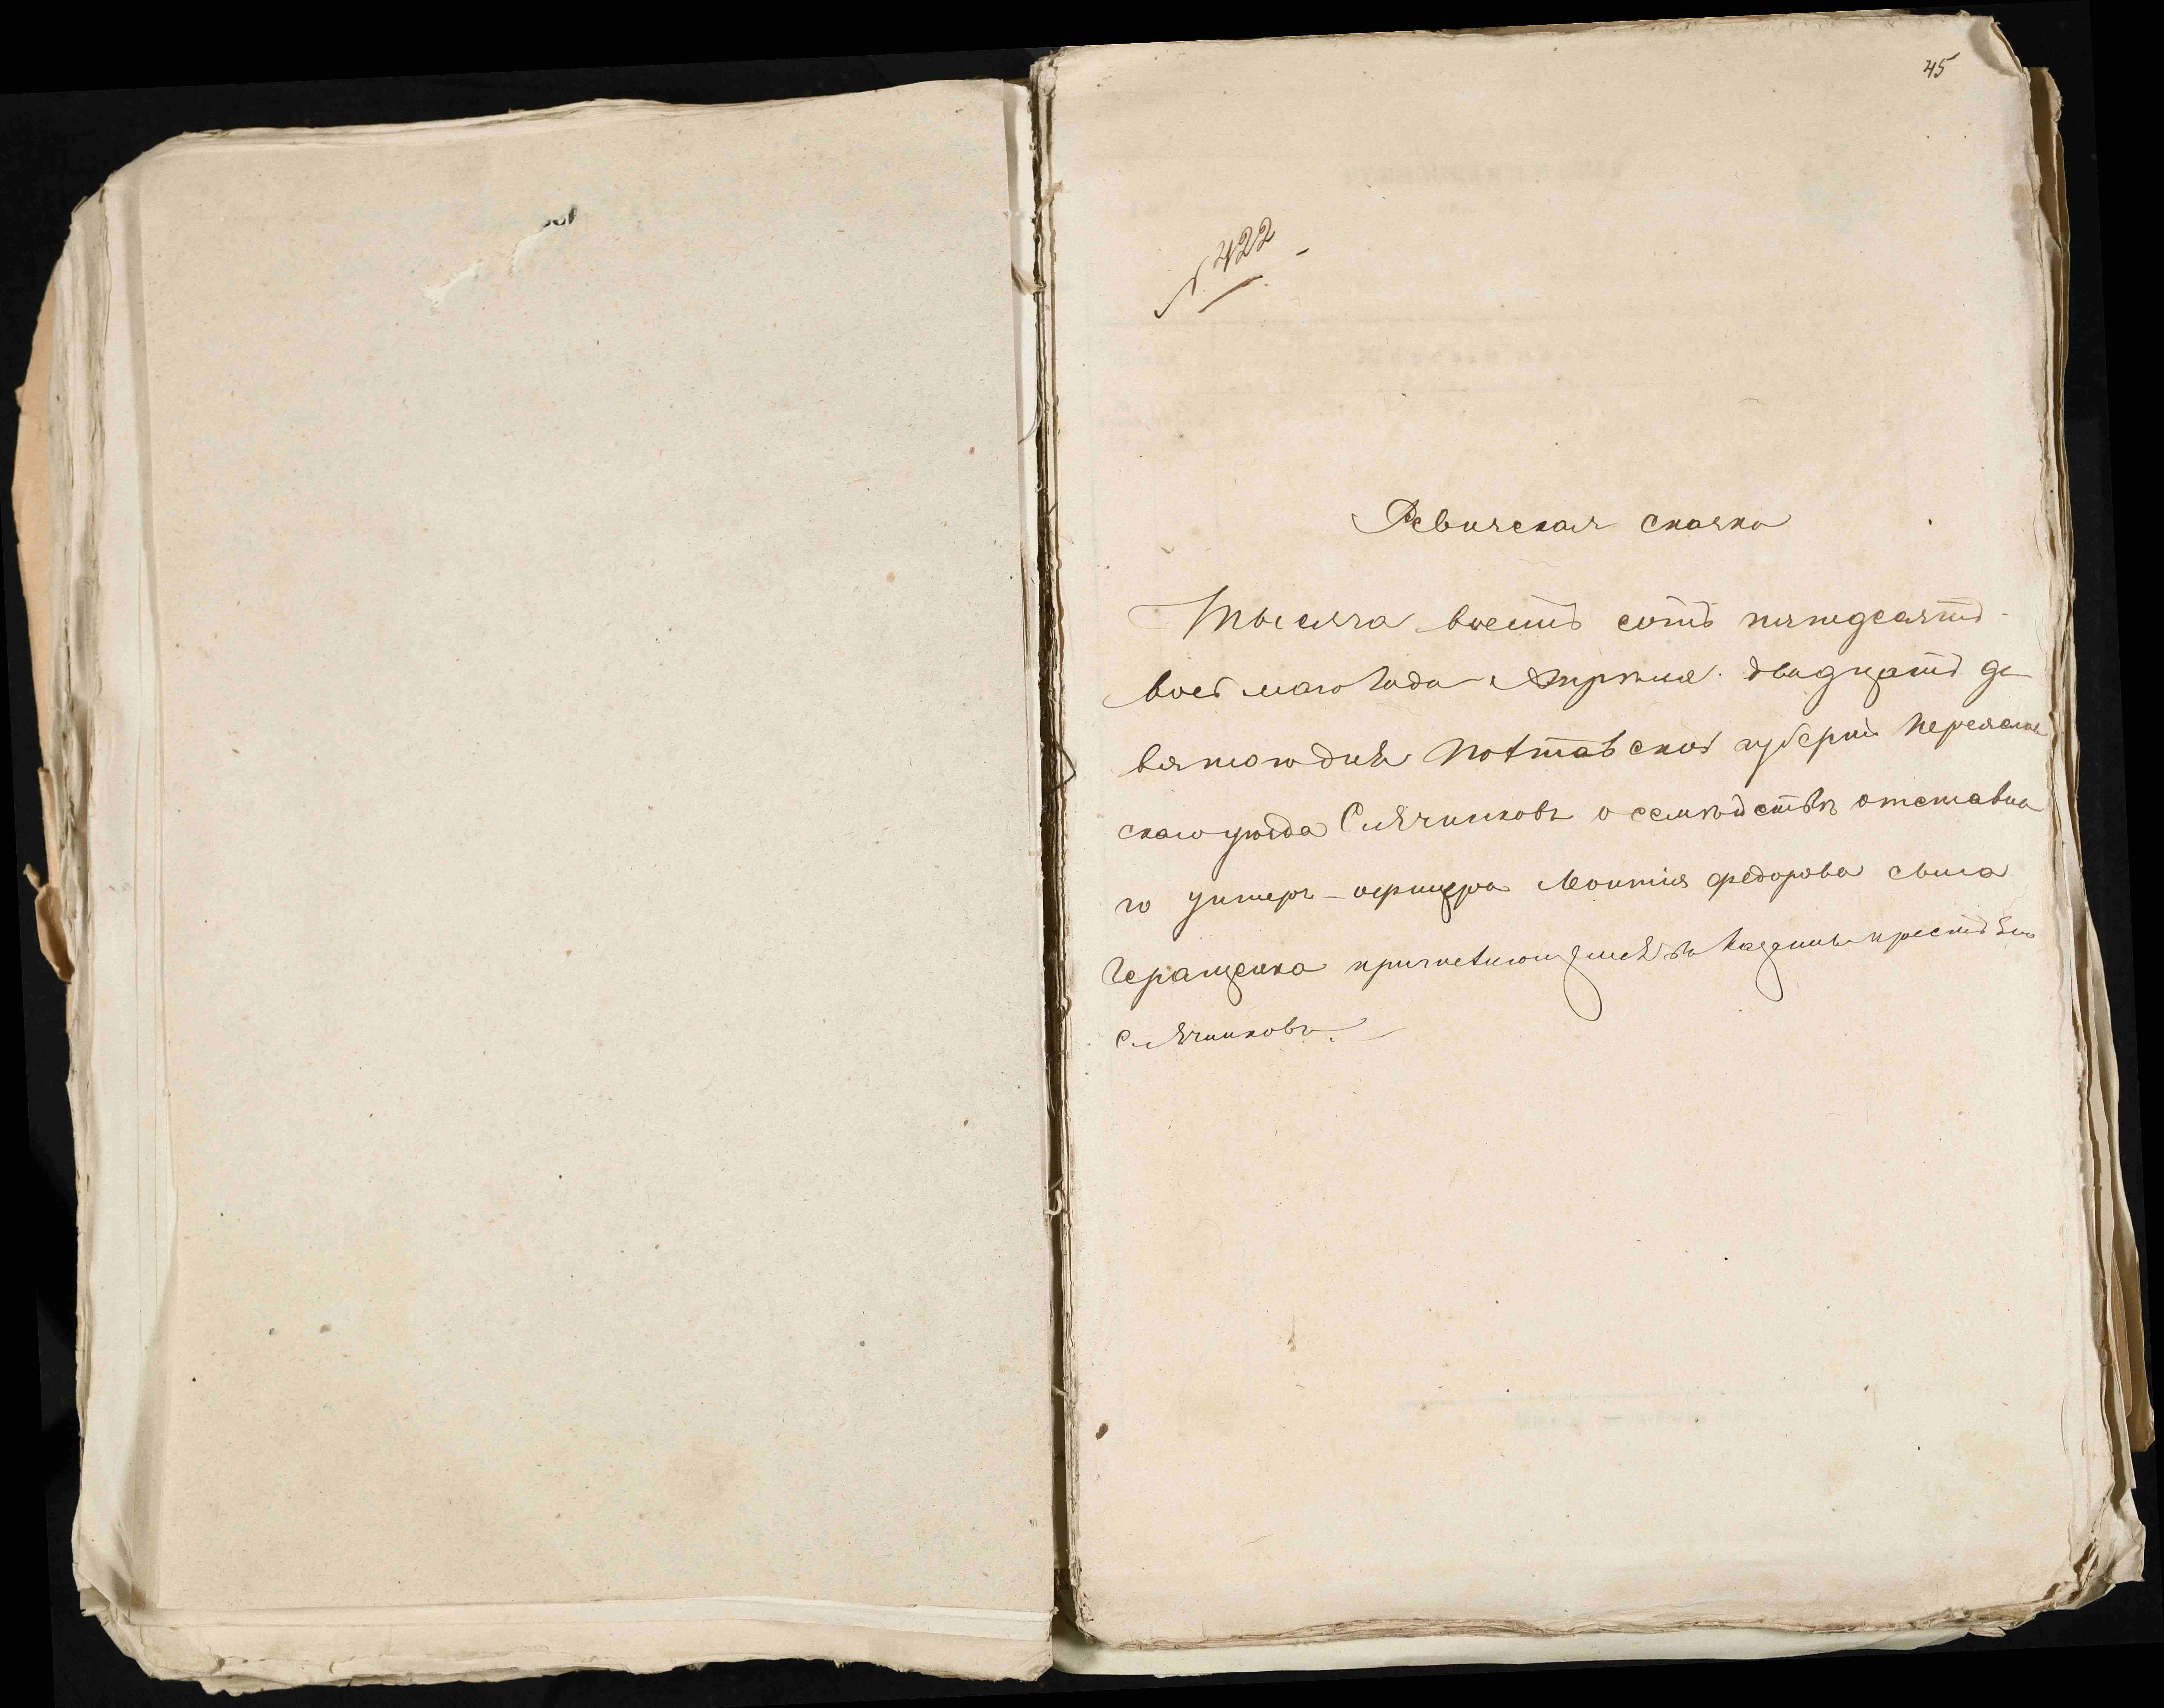 45
№ 422
Ревизская сказка
Тысяча восемь сотъ пятьдесятъ
восьмаго года Апреля двадцать де
вятого дня Полтавской губерніи Переяслав
скаго уезда Слѣчинковъ о семѣйствѣ отставна
го унтеръ-офицера Леонтія Федорова сына
Геращенка
Слѣчинковъ.